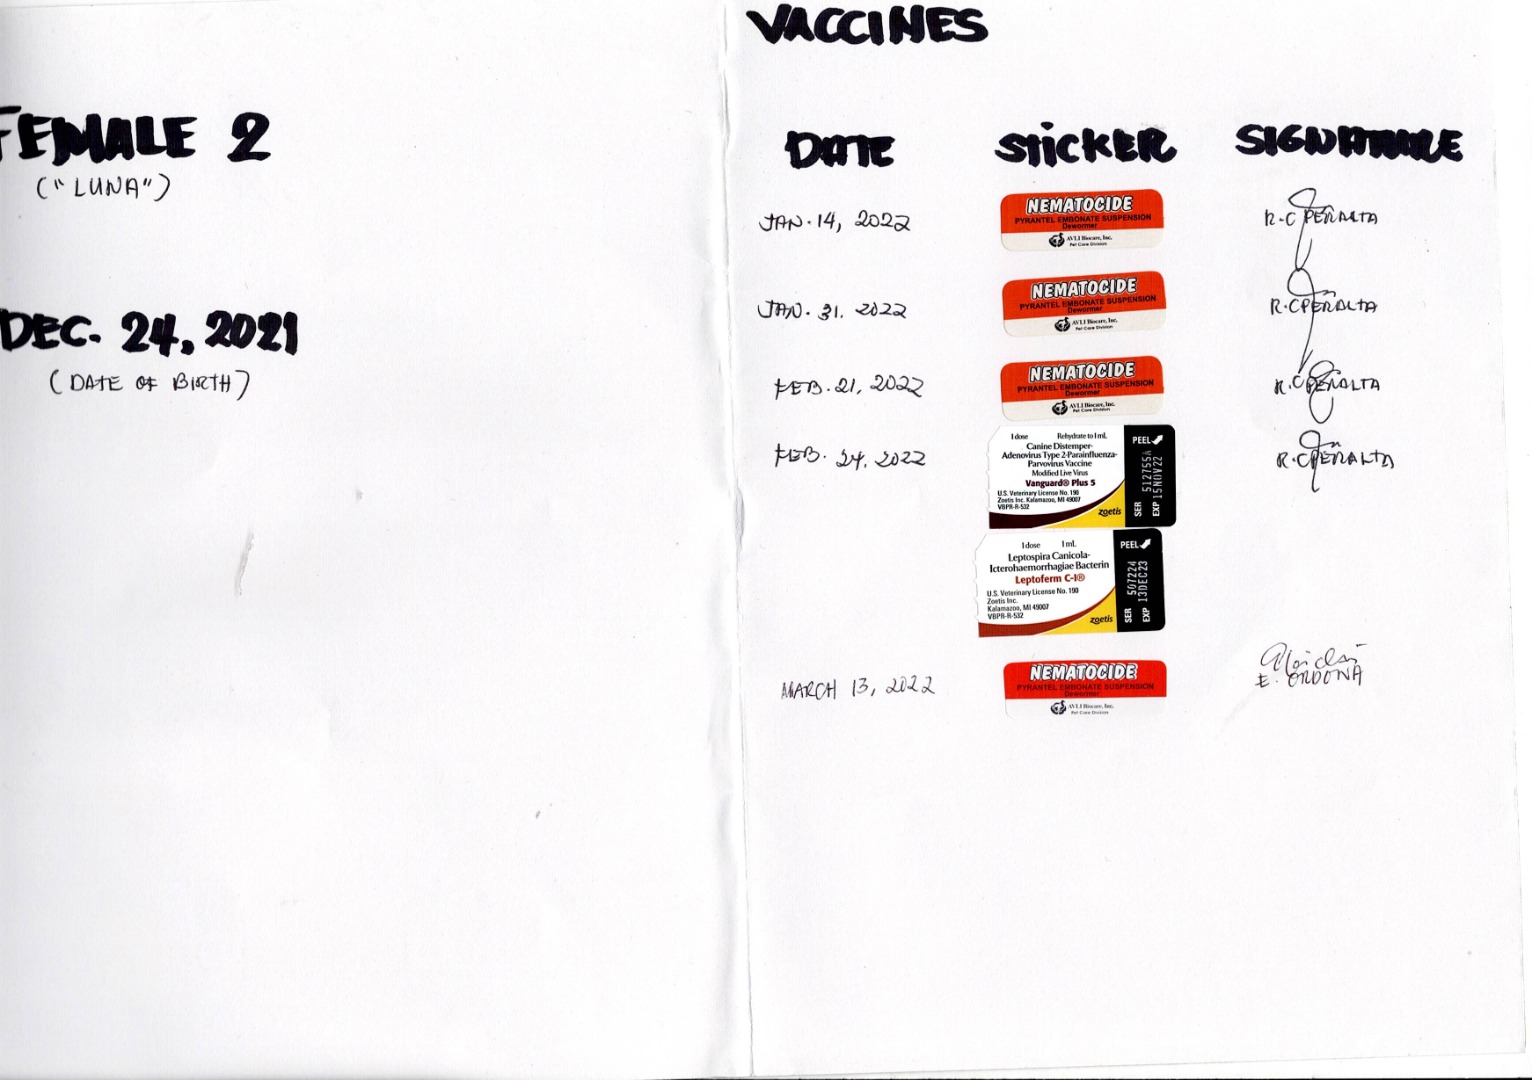 FEMALE 2
("LUNA")
DEC. 24, 2021
(DATE OF BIRTH)
VACCINES
DATE STICKER SIGNATURE
JAN. 14, 2022
NEMATOCIDE
PYRANTEL EMBONATE SUSPENSION
Dewormer
AVLI Biocare, Inc.
Pet Care Division
R.C PERALTA
JAN. 31. 2022
NEMATOCIDE
PYRANTEL EMBONATE SUSPENSION
Dewormer
AVLI Biocare, Inc.
Pet Care Division
R.CPERALTA
FEB. 21, 2022
NEMATOCIDE
PYRANTEL EMBONATE SUSPENSION
Dewormer
AVLI Biocare, Inc.
Pet Care Division
R.CPERALTA
FEB. 24. 2022
1 dose Rehydrate to 1 mL
Canine Distemper-
Adenovirus Type 2-Parainfluenza-
Parvovirus Vaccine
Modified Live Virus
Vanguard® Plus 5
U.S. Veterinary License No. 190
Zoetis Inc. Kalamazoo, MI 49007
VBPR-R-532
zoetis
PEEL
SER 512755A
EXP 15NOV22
R.CPERALTA
1 dose 1 mL
Leptospira Canicola-
Icterohaemorrhagiae Bacterin
Leptoferm C-I®
U.S. Veterinary License No. 190
Zoetis Inc.
Kalamazoo, MI 49007
VBPR-R-532
zoetis
PEEL
SER 507224
EXP 13DEC23
MARCH 13, 2022
NEMATOCIDE
PYRANTEL EMBONATE SUSPENSION
Dewormer
AVLI Biocare, Inc.
Pet Care Division
E. ORDOÑA